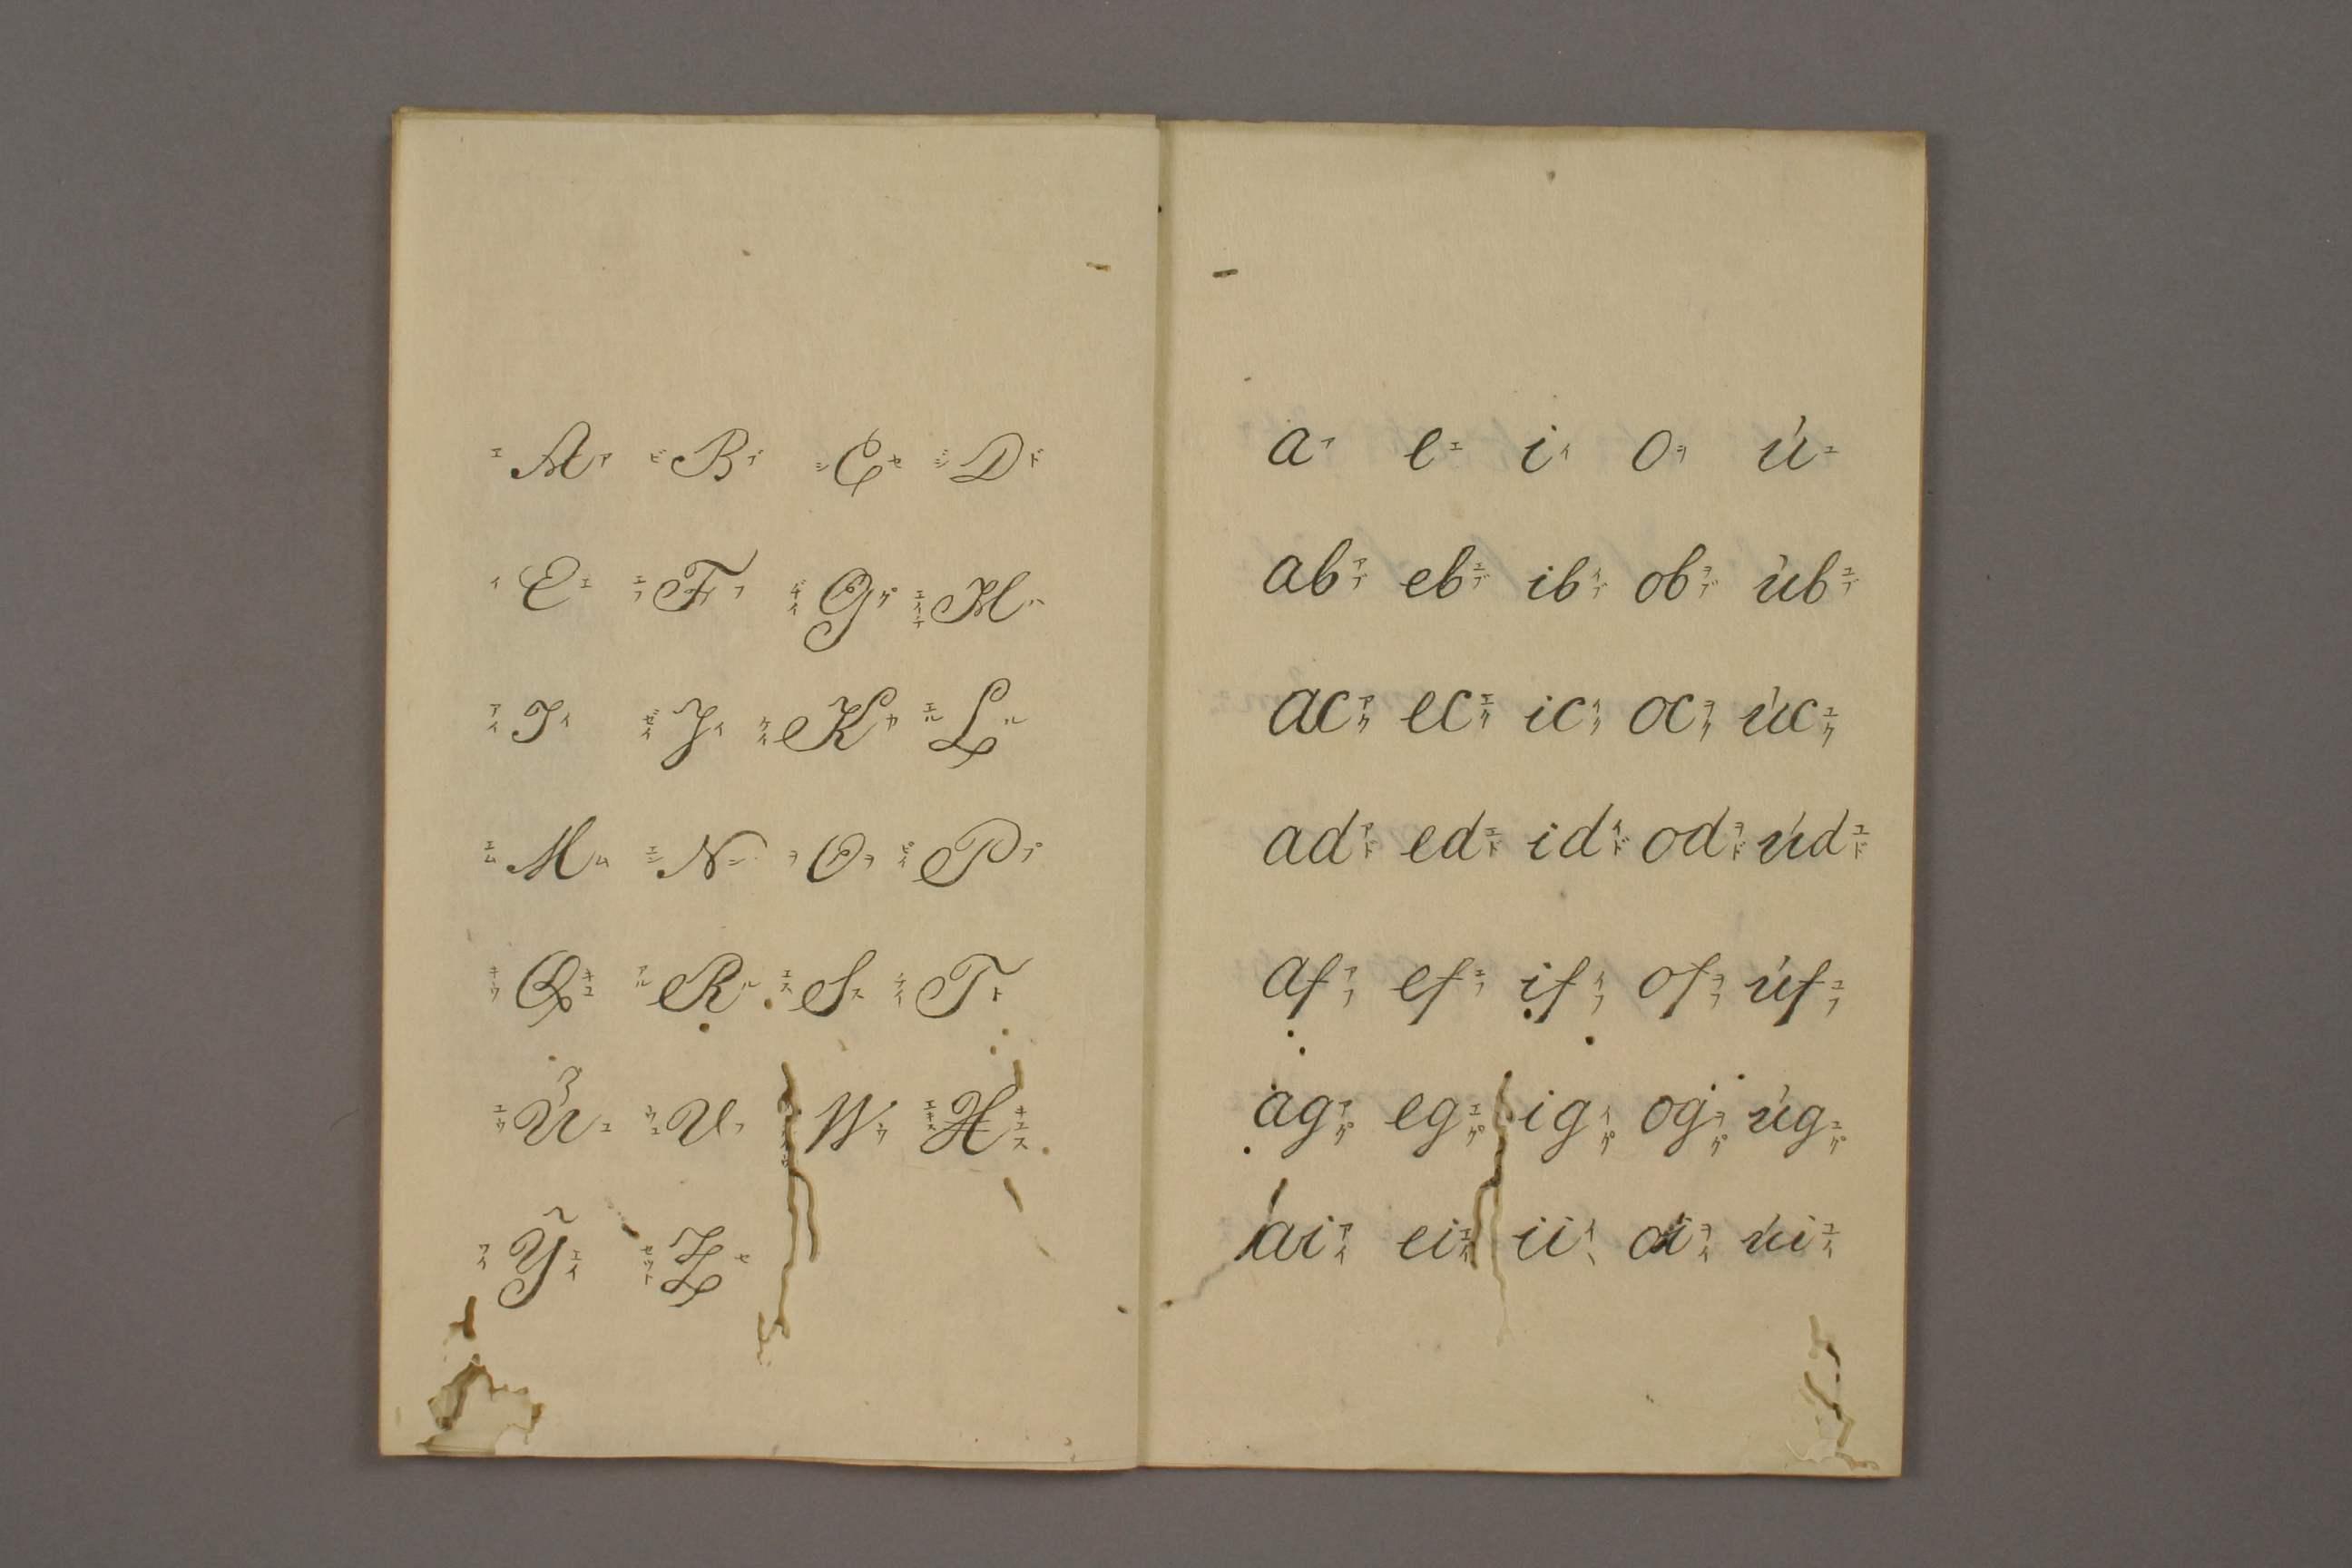 エ A ア ビ B ブ シ C セ ジ D ド
イ E エ エフ F フ ヂイ G グ エイチ H ハ
アイ I イ ゼイ J イ ケイ K カ エル L ル
エム M ム エン N ン ヲ O ヲ ピイ P プ
キウ Q キユ アル R ル エス S ス テイ T ト
ユウ U ユ ウユ V フ W ウ エキス X キユス
ワイ Y エイ セット Z セ
a ア e エ i イ o ヲ ú ユ
ab アブ eb エブ ib イブ ob ヲブ úb ユブ
ac アク ec エク ic イク oc ヲク úc ユク
ad アド ed エド id イド od ヲド úd ユド
af アフ ef エフ if イフ of ヲフ úf ユフ
ag アグ eg エグ ig イグ og ヲグ úg ユグ
ai アイ ei エイ ii イヽ oi ヲイ úi ユイ